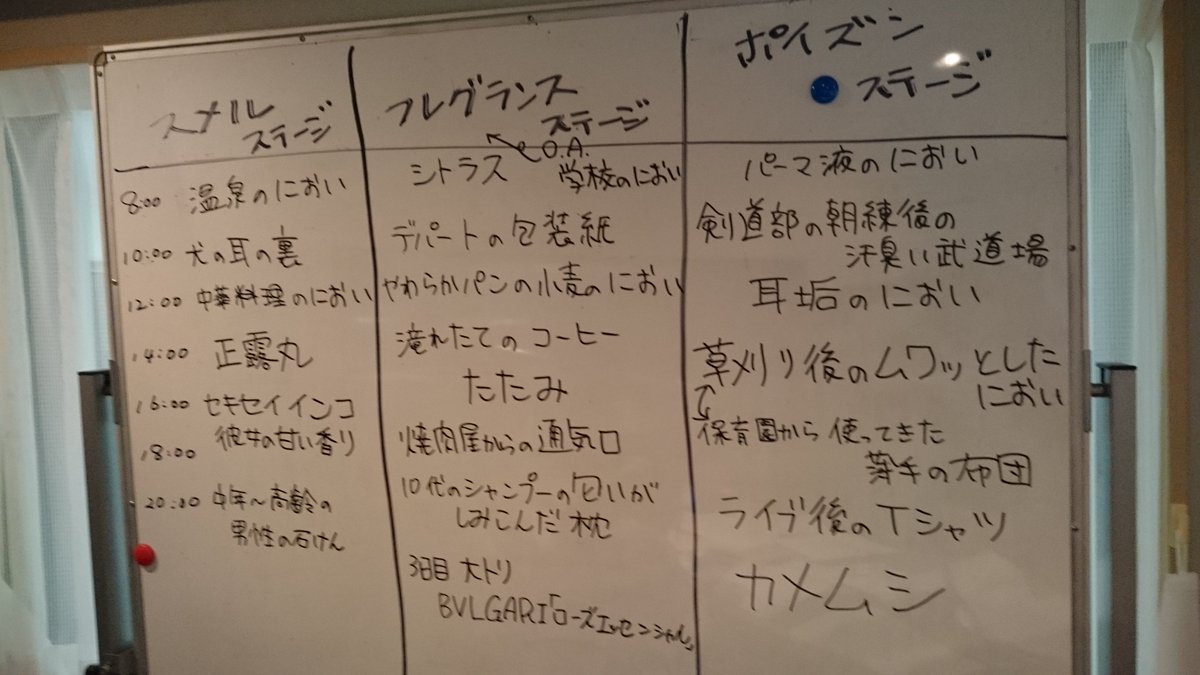 スメル
ステージ
8:00 温泉のにおい
10:00 犬の耳の裏
12:00 中華料理のにおい
14:00 正露丸
16:00 セキセイインコ
18:00 彼女の甘い香り
20:00 中年〜高齢の
男性の石けん
フレグランス
ステージ
O.A.
シトラス 学校のにおい
デパートの包装紙
やわらかパンの小麦のにおい
滝れたてのコーヒー
たたみ
焼肉屋からの通気口
10代のシャンプーの匂いが
しみこんだ枕
3日目 大トリ
BVLGARI「ローズエッセンシャル」
ポイズン
ステージ
パーマ液のにおい
剣道部の朝練後の
汗臭い武道場
耳垢のにおい
草刈り後のムワッとした
におい
保育園から使ってきた
薄手の布団
ライブ後のTシャツ
カメムシ